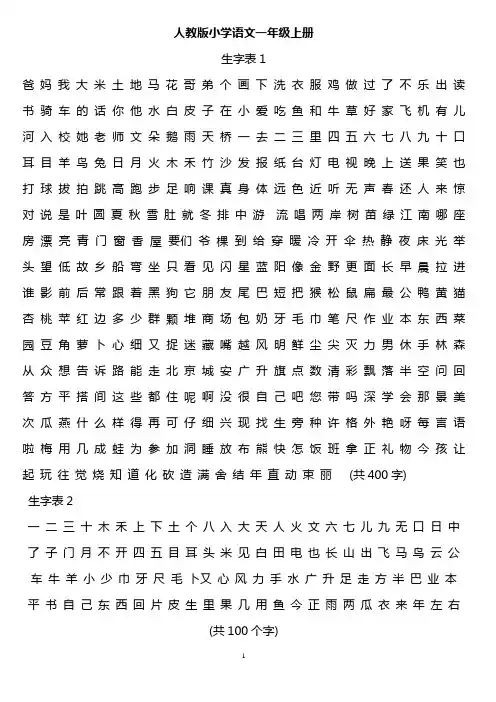 人教版小学语文一年级上册
生字表 1
爸 妈 我 大 米 土 地 马 花 哥 弟 个 画 下 洗 衣 服 鸡 做 过 了 不 乐 出 读
书 骑 车 的 话 你 他 水 白 皮 子 在 小 爱 吃 鱼 和 牛 草 好 家 飞 机 有 儿
河 入 校 她 老 师 文 朵 鹅 雨 天 桥 一 去 二 三 里 四 五 六 七 八 九 十 口
耳 目 羊 鸟 兔 日 月 火 木 禾 竹 沙 发 报 纸 台 灯 电 视 晚 上 送 果 笑 也
打 球 拔 拍 跳 高 跑 步 足 响 课 真 身 体 远 色 近 听 无 声 春 还 人 来 惊
对 说 是 叶 圆 夏 秋 雪 肚 就 冬 排 中 游 流 唱 两 岸 树 苗 绿 江 南 哪 座
房 漂 亮 青 门 窗 香 屋 要们 爷 棵 到 给 穿 暖 冷 开 伞 热 静 夜 床 光 举
头 望 低 故 乡 船 弯 坐 只 看 见 闪 星 蓝 阳 像 金 野 更 面 长 早 晨 拉 进
谁 影 前 后 常 跟 着 黑 狗 它 朋 友 尾 巴 短 把 猴 松 鼠 扁 最 公 鸭 黄 猫
杏 桃 苹 红 边 多 少 群 颗 堆 商 场 包 奶 牙 毛 巾 笔 尺 作 业 本 东 西 菜
园 豆 角 萝 卜 心 细 又 捉 迷 藏 嘴 越 风 明 鲜 尘 尖 灭 力 男 休 手 林 森
从 众 想 告 诉 路 能 走 北 京 城 安 广 升 旗 点 数 清 彩 飘 落 半 空 问 回
答 方 平 搭 间 这 些 都 住 呢 啊 没 很 自 己 吧 您 带 吗 深 学 会 那 景 美
次 瓜 燕 什 么 样 得 再 可 仔 细 兴 现 找 生 旁 种 许 格 外 艳 呀 每 言 语
啦 梅 用 几 成 蛙 为 参 加 洞 睡 放 布 熊 快 怎 饭 班 拿 正 礼 物 今 孩 让
起 玩 往 觉 烧 知 道 化 砍 造 满 舍 结 年 直 动 束 丽 (共 400 字)
生字表 2
一 二 三 十 木 禾 上 下 土 个 八 入 大 天 人 火 文 六 七 儿 九 无 口 日 中
了 子 门 月 不 开 四 五 目 耳 头 米 见 白 田 电 也 长 山 出 飞 马 鸟 云 公
车 牛 羊 小 少 巾 牙 尺 毛 卜又 心 风 力 手 水 广 升 足 走 方 半 巴 业 本
平 书 自 己 东 西 回 片 皮 生 里 果 几 用 鱼 今 正 雨 两 瓜 衣 来 年 左 右
(共 100 个字)
1